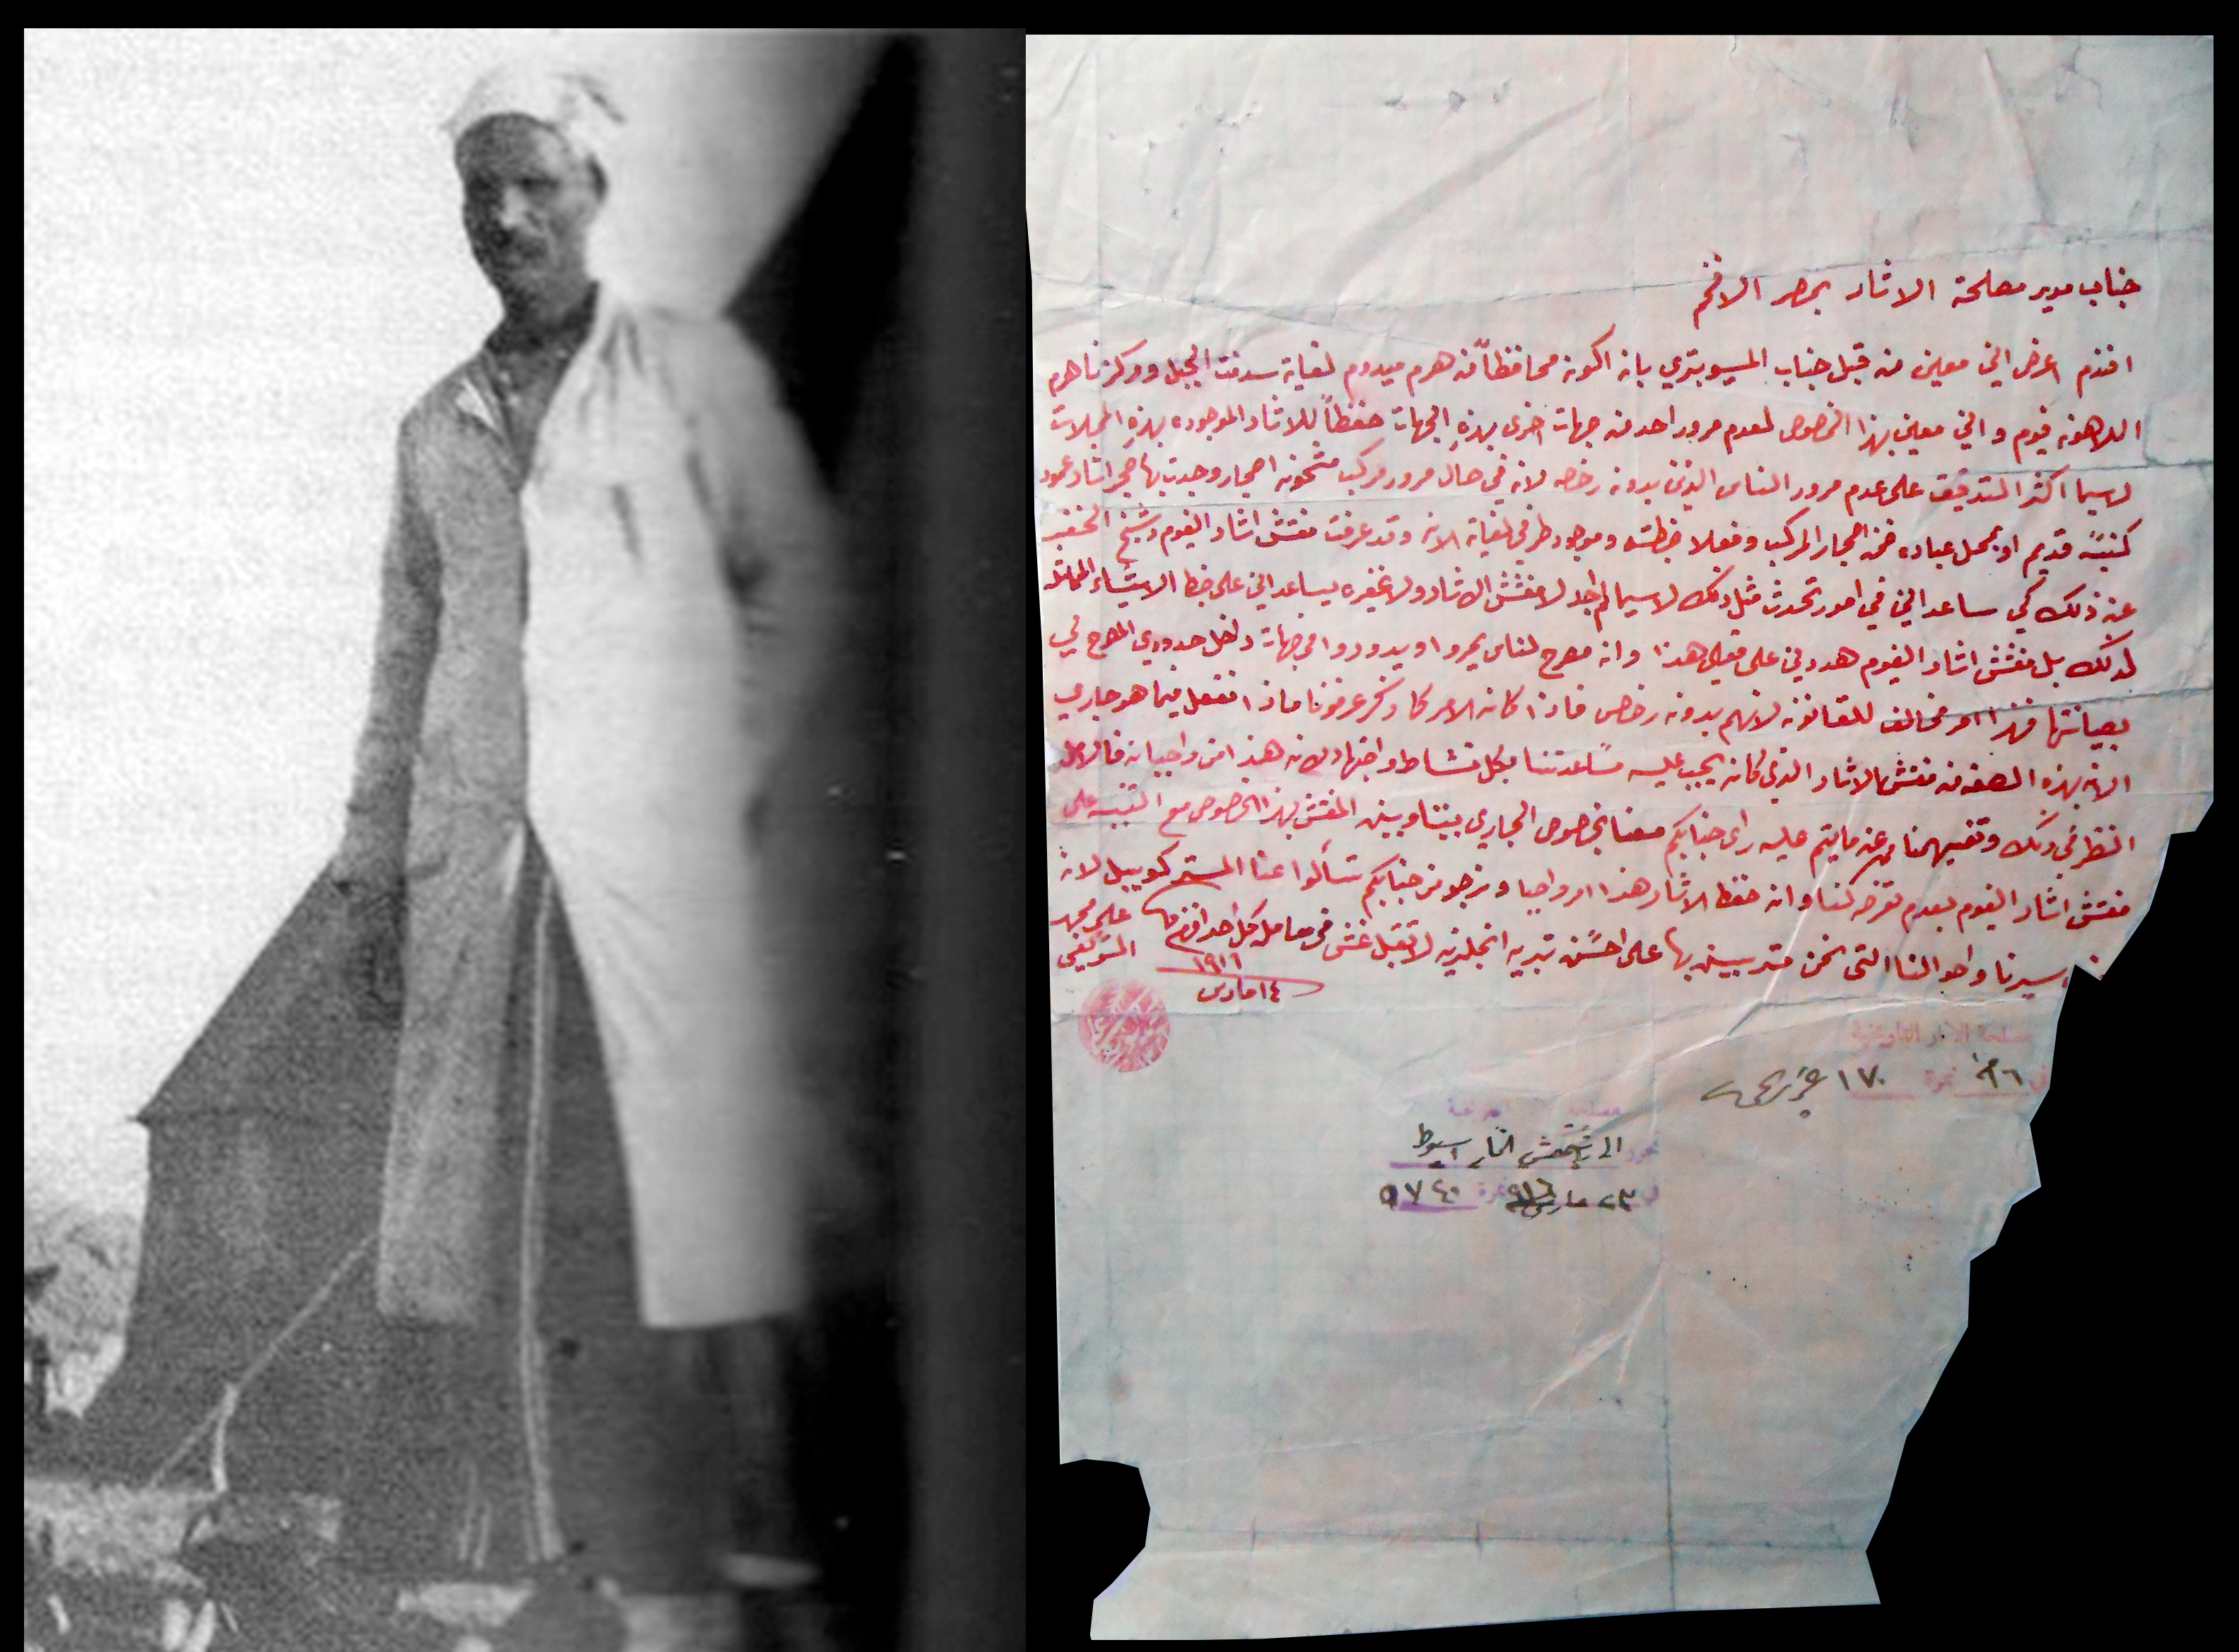 جناب مدير مصلحة الاثار بمصر الافخم
افندم اعرض اني معين من قبل جناب المسيو بتري بان اكون محافظاً من هرم ميدوم لغاية سدمنت الجبل ومركزنا هرم
اللاهون فيوم واني معين بهذا الخصوص لعدم مرور احد من جهات اخرى بهذه الجهات حفظاً للاثار الموجوده بهذه المحلات
لاسيما اكثر التدقيق على عدم مرور الناس الذين بدون رخصه لانه في حال مرور مركب مشحونه احجار وجدت بها حجر اثار عمود
كنيسة قديم او محل عباده ضمن احجار المركب وفعلا ضبطته وموجود طرفي لغاية الان وقد عرفت مفتش اثار الفيوم وشيخ الخفر
عن ذلك كي ساعداني في امور تحدث مثل ذلك لاسيما لم اجد لا مفتش الاثار ولا غيره يساعداني على ضبط الاشياء المماثله
لذلك بل مفتش اثار الفيوم هددني على فعلي هذا وانه مصرح لناس يمروا ويدوروا في جهات داخل حدودي المصرح لي
بصيانتها فهذا امر مخالف للقانون لانهم بدون رخص فاذا كان الامر كما ذكر عرفونا ماذا نفعل فيما هو جاري
الان بهذه الصفه من مفتش الاثار الذي كان يجب عليه مساعدتنا بكل نشاط واجتهاد لان هذا من واجباته فالامل
النظر في ذلك وتفهيمنا عن ما يتم عليه راى جنابكم معنا بخصوص الجاري بيننا وبين المفتش بهذا الخصوص مع التنبيه على
مفتش اثار الفيوم بعدم تعرضه لنا وان حفظ الاثار هذا امر واجبا ونرجو من جنابكم تسألوا عنا المستر كويبل لانه
سيرنا واحوالنا التى نحن متدربين بها على احسن تربيه انجليزيه لا تقبل غش في معاملة كل احد افندم
على محمد
السويفى
١٩١٦
١٤ مارس
مصلحة الاثار التاريخية
نمرة ١٧٠
الى مفتش اثار اسيوط
في ٢٣ مارس ٩١٦ نمرة ٩٧٤٠